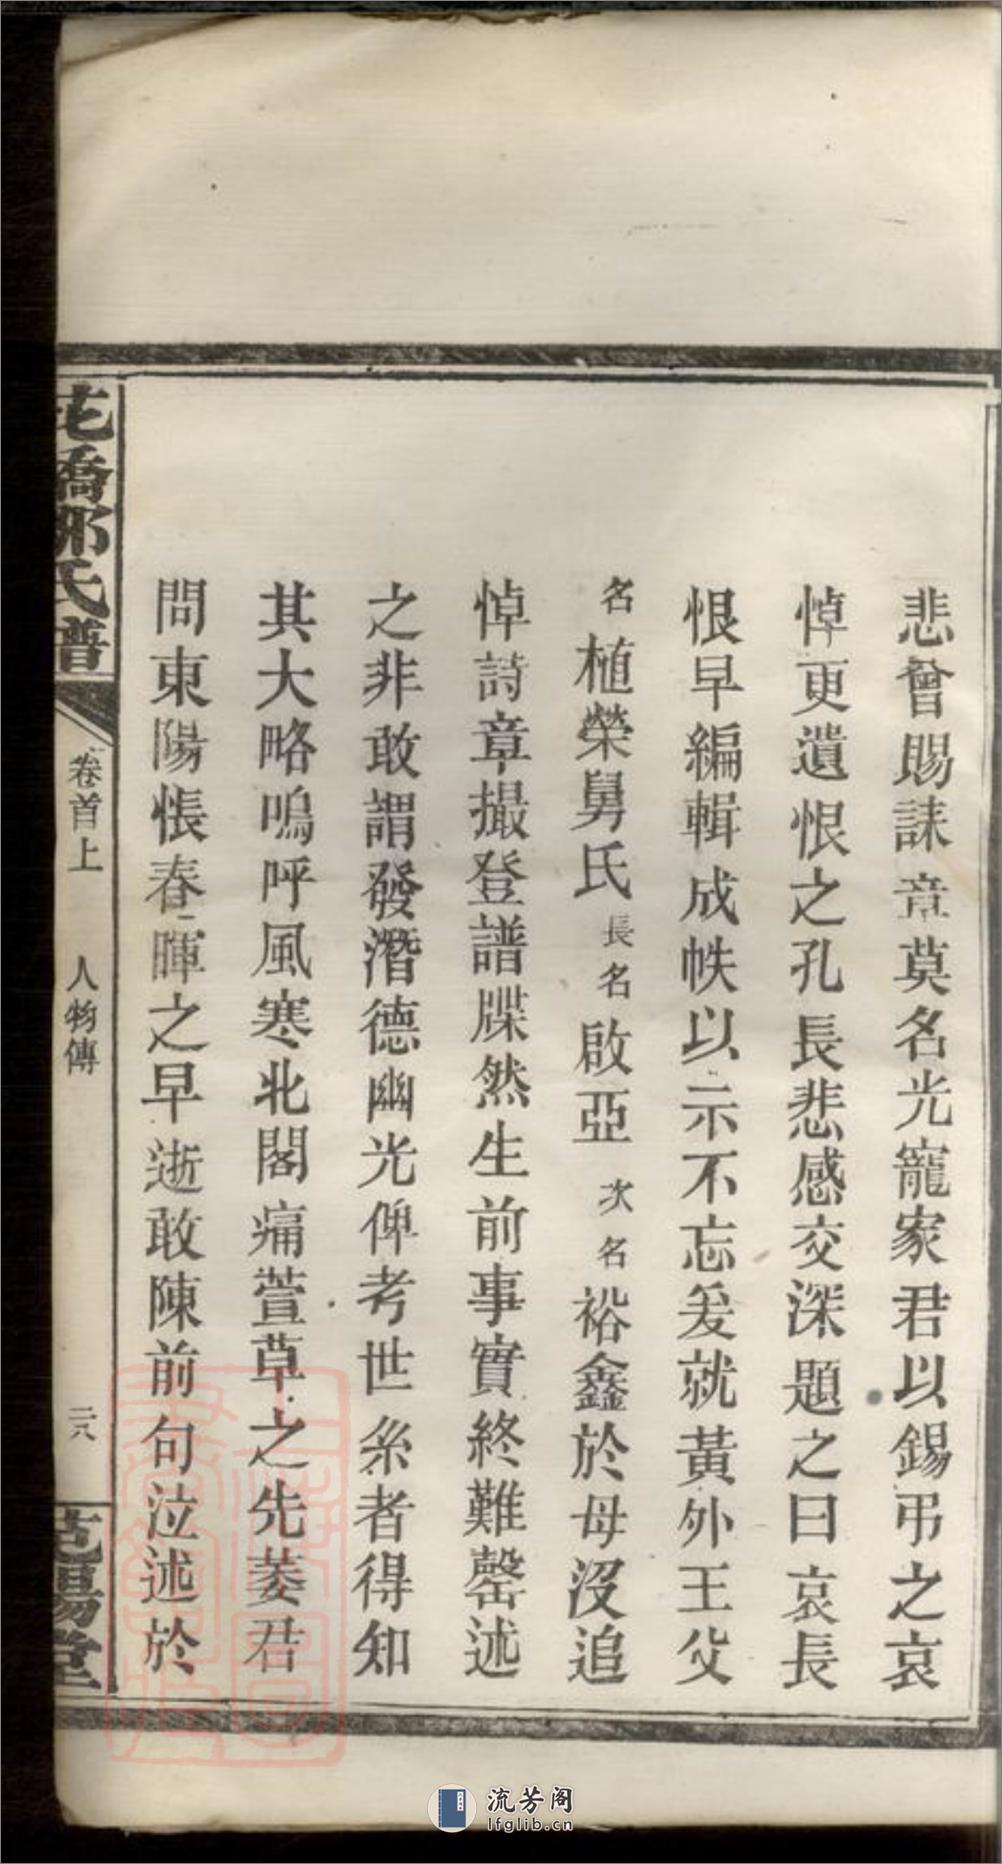 悲曾賜誄章莫名光寵家君以錫弔之哀
悼更遺恨之孔長悲感交深題之曰哀長
恨早編輯成帙以示不忘爰就黃外王父
名植榮舅氏長名啟亞次名裕鑫於母沒追
悼詩章撮登譜牒然生前事實終難罄述
之非敢謂發潛德幽光俾考世系者得知
其大略嗚呼風寒北閣痛萱草之先萎君
問東陽悵春暉之早逝敢陳前句泣述於
花橋邢氏譜
卷首上
人物傳
二八
流芳阁
lfglib.cn